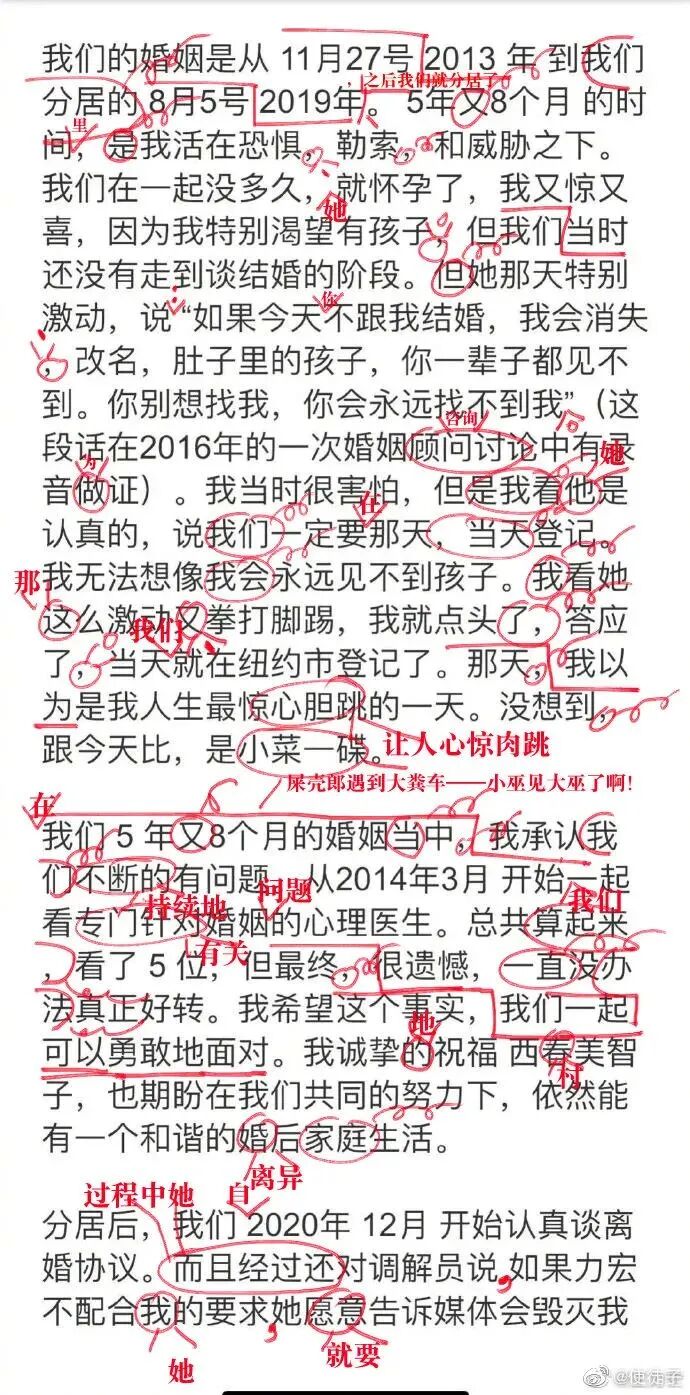 我们的婚姻是从 11月27号 2013 年 到我们
，之后我们就分居了
分居的 8月5号 2019年。 5年又8个月 的时
里
间，是我活在恐惧，勒索，和威胁之下。
我们在一起没多久，就怀孕了，我又惊又
她
喜，因为我特别渴望有孩子，但我们当时
还没有走到谈结婚的阶段。但她那天特别
你
激动，说 “如果今天不跟我结婚，我会消失
，改名，肚子里的孩子，你一辈子都见不
到。你别想找我，你会永远找不到我”（这
咨询
后
段话在2016年的一次婚姻顾问讨论中有录
为
她
音做证）。我当时很害怕，但是我看他是
在
认真的，说我们一定要那天，当天登记。
我无法想像我会永远见不到孩子。我看她
那
这么激动又拳打脚踢，我就点头了，答应
我们
了，当天就在纽约市登记了。那天，我以
为是我人生最惊心胆跳的一天。没想到，
跟今天比，是小菜一碟。
让人心惊肉跳
屎壳郎遇到大粪车——小巫见大巫了啊！
在
我们 5 年又8个月的婚姻当中，我承认我
们不断的有问题，从2014年3月 开始一起
持续地
问题
我们
看专门针对婚姻的心理医生。总共算起来
有关
，看了 5 位，但最终，很遗憾，一直没办
法真正好转。我希望这个事实，我们一起
地
可以勇敢地面对。我诚挚的祝福 西春美智
村
子，也期盼在我们共同的努力下，依然能
有一个和谐的婚后家庭生活。
离异
过程中她
自
分居后，我们 2020年 12月 开始认真谈离
婚协议。而且经过还对调解员说，如果力宏
不配合我的要求她愿意告诉媒体会毁灭我
，
她
就要
@使徒子